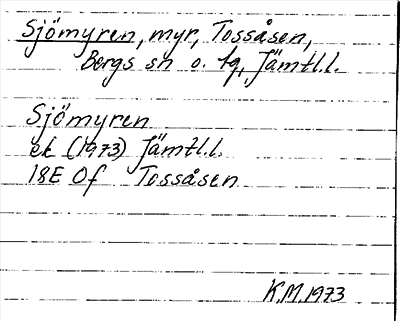 Sjömyren, myr, Tossåsen,
Bergs sn o. tg, Jämtl.l.
Sjömyren
ek (1973) Jämtl.l.
18E 0f Tossåsen
K.M.1973